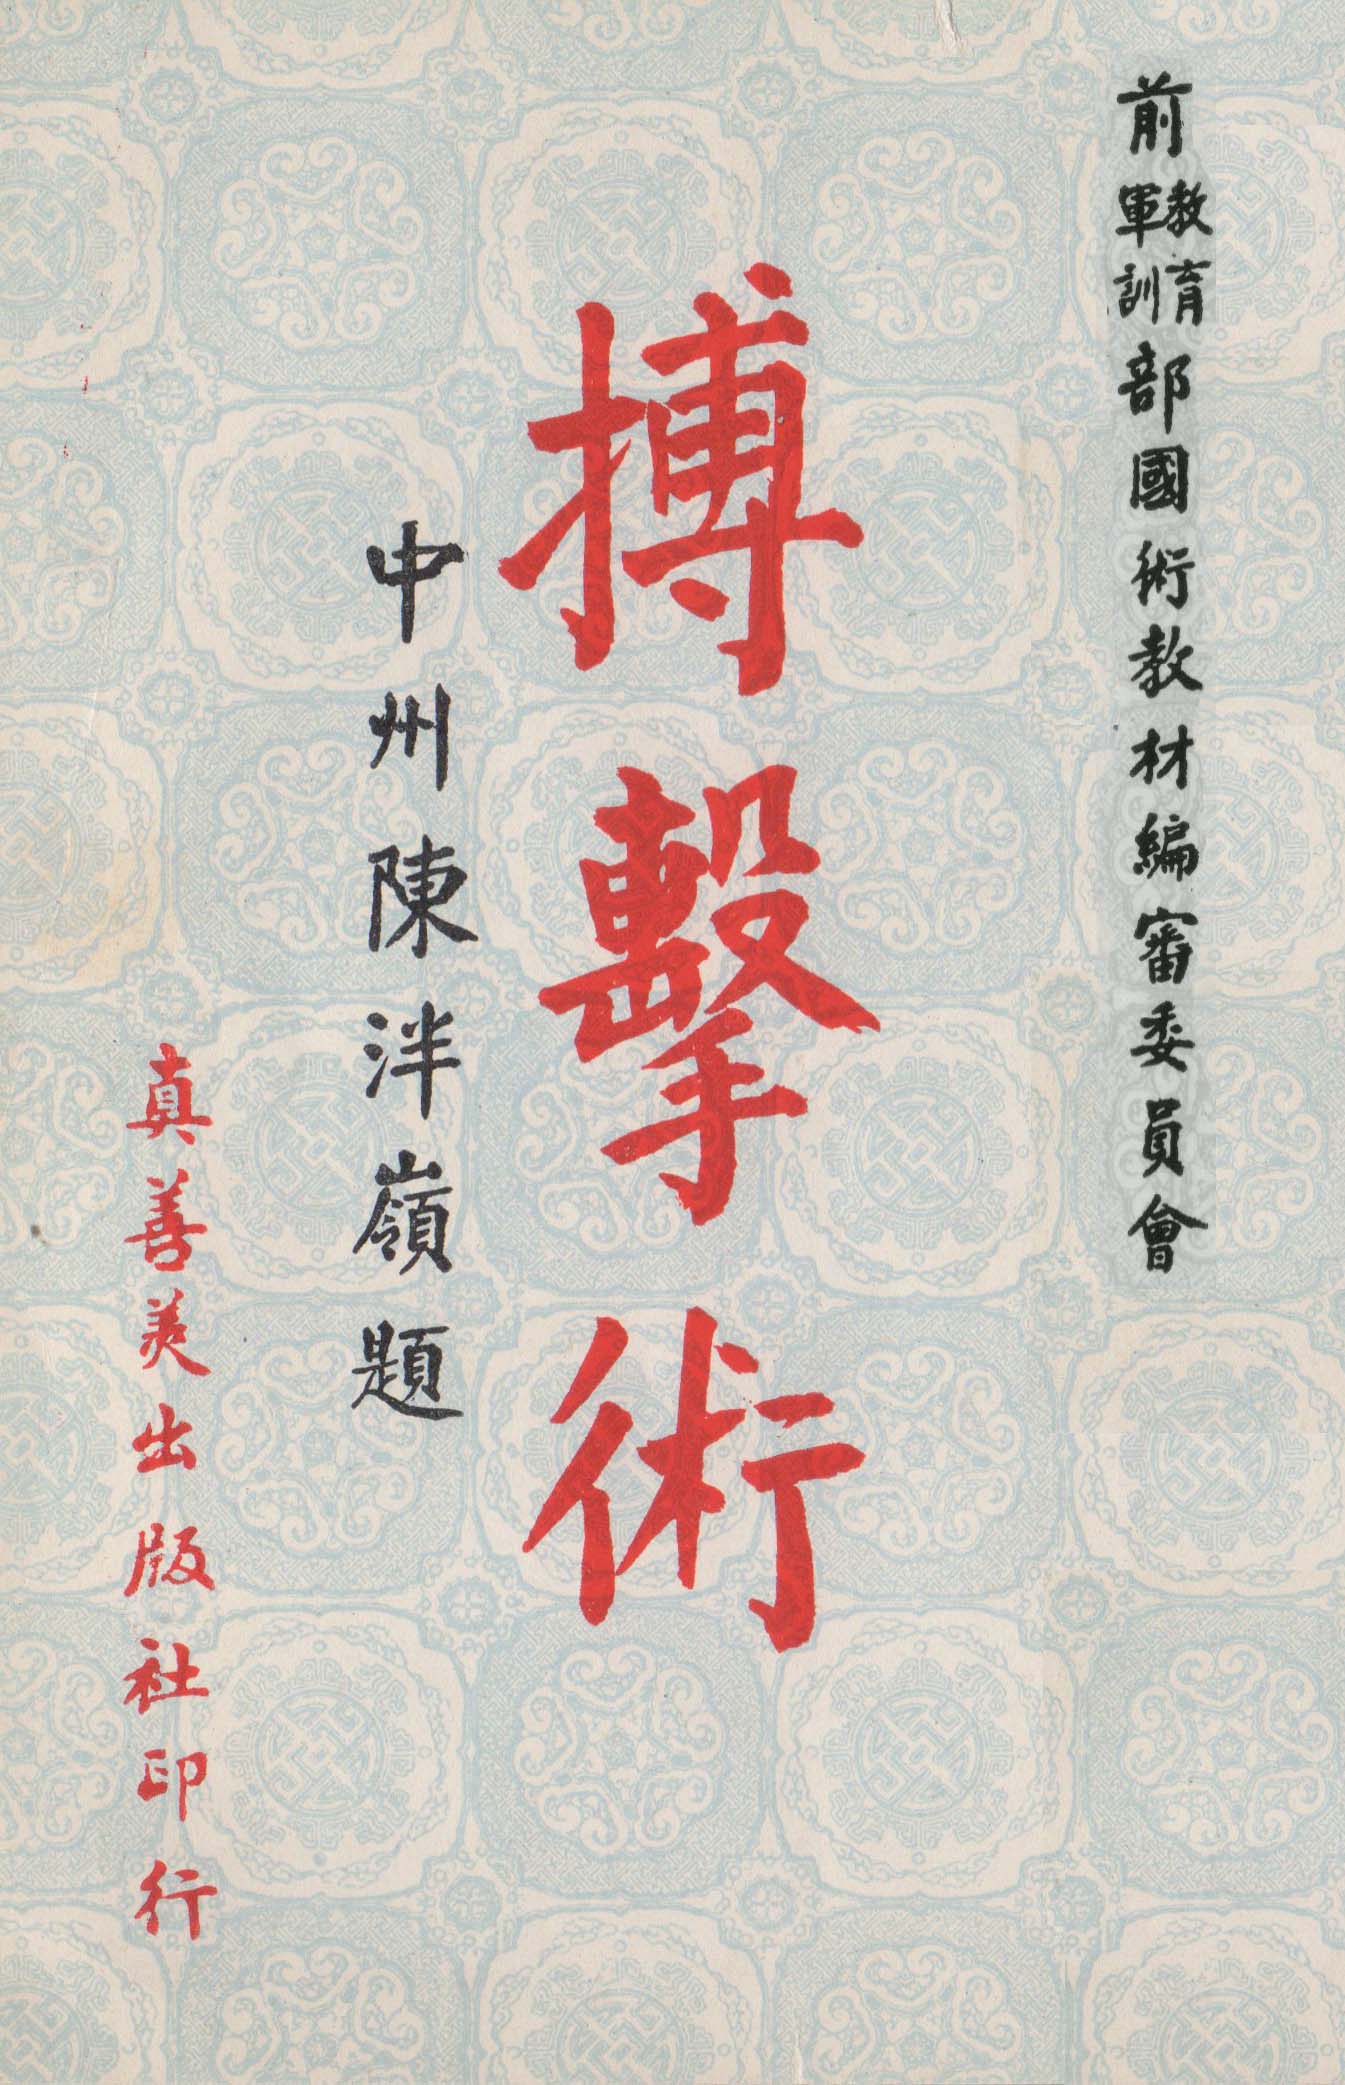 前教育軍訓部國術教材編審委員會
搏擊術
中州陳泮嶺題
真善美出版社印行